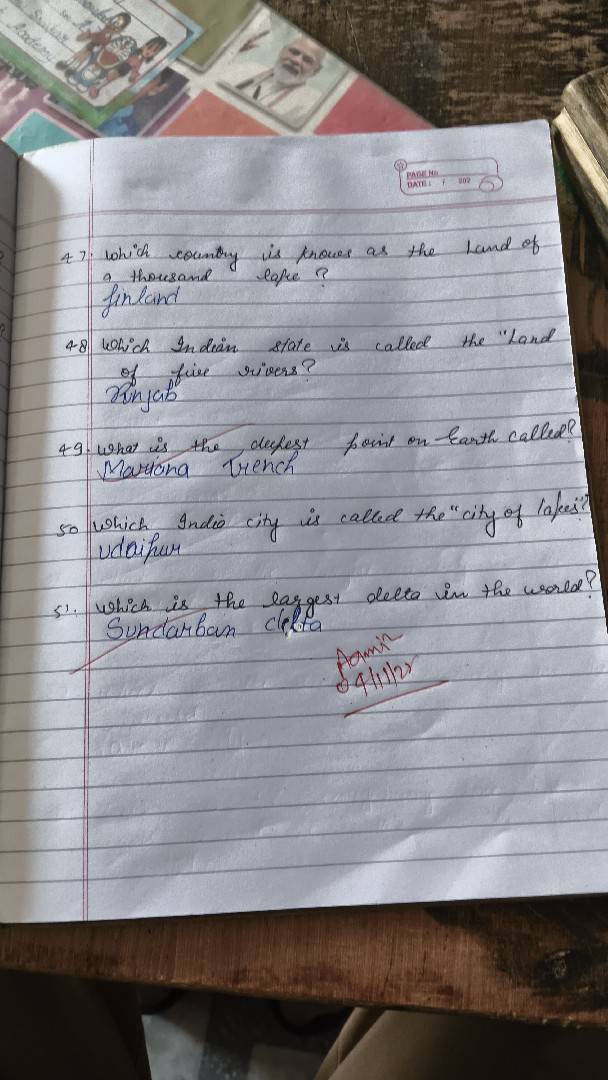 Academy
PAGE No.
DATE: / /202
47. Which country is knoues as the Land of
a thousand lake ?
finland
48 Which Indian state is called the "Land
of five rivers?
Punjab
49. What is the deepest point on Earth called?
Mariana Trench
50 Which India city is called the "city of lakes"?
Udaipur
51. Which is the laggest delta in the world?
Sundarban delta